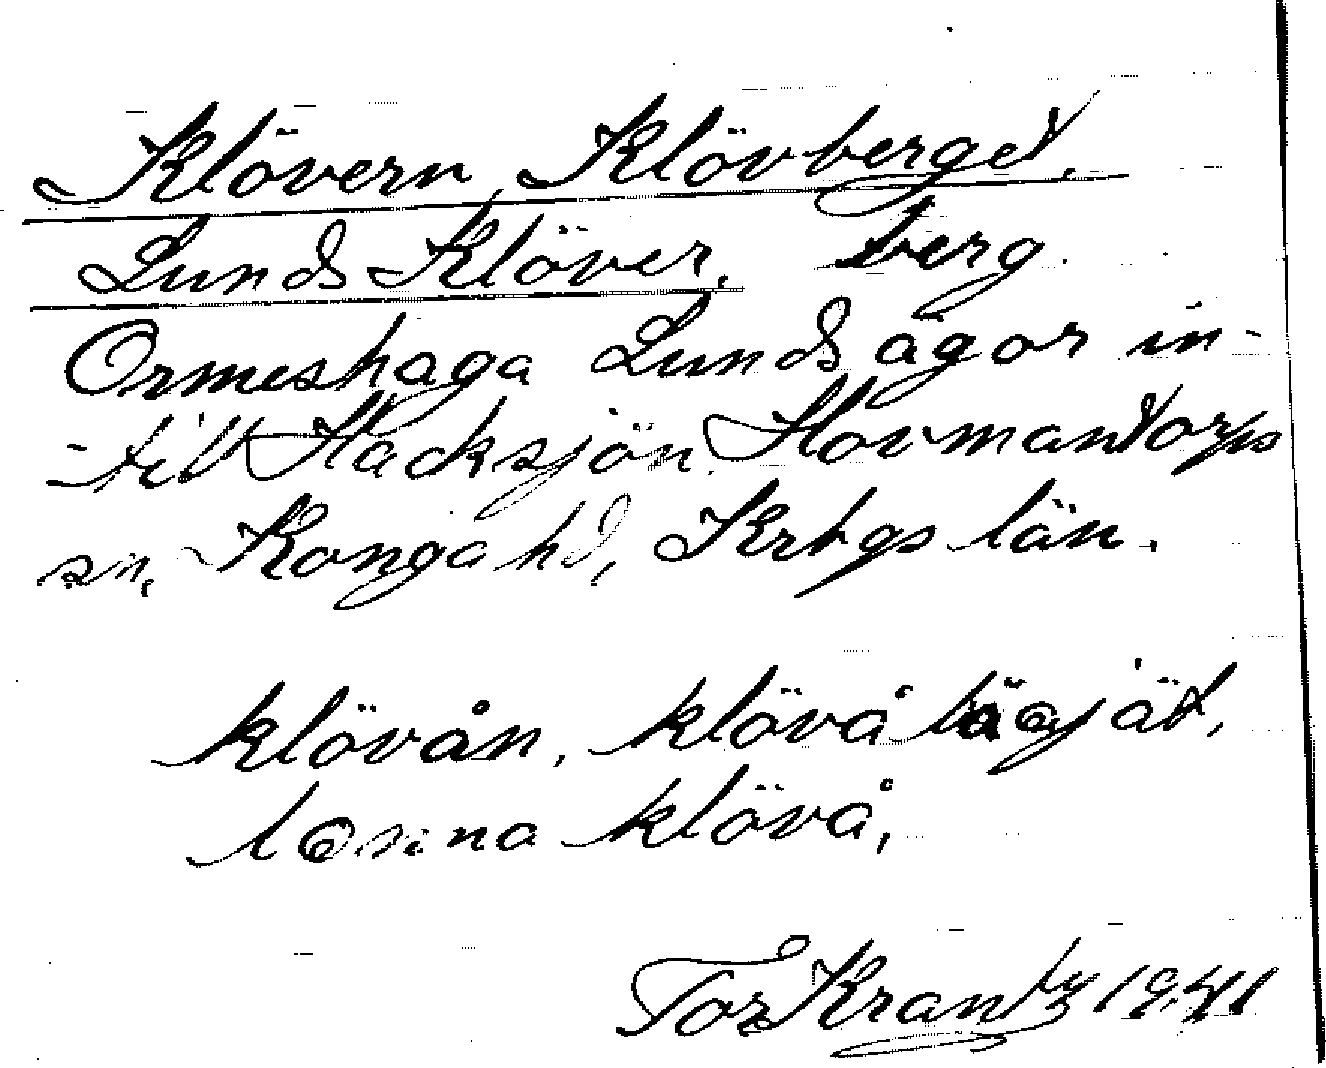 Klövern, Klövberget,
Lunds Klöver. berg
Ormeshaga Lunds ägor in-
-till Hacksjön Hovmantorps
sn, Konga hd, Krbgs län.
klövån, klövå
klövå,
Tor Krantz 1941